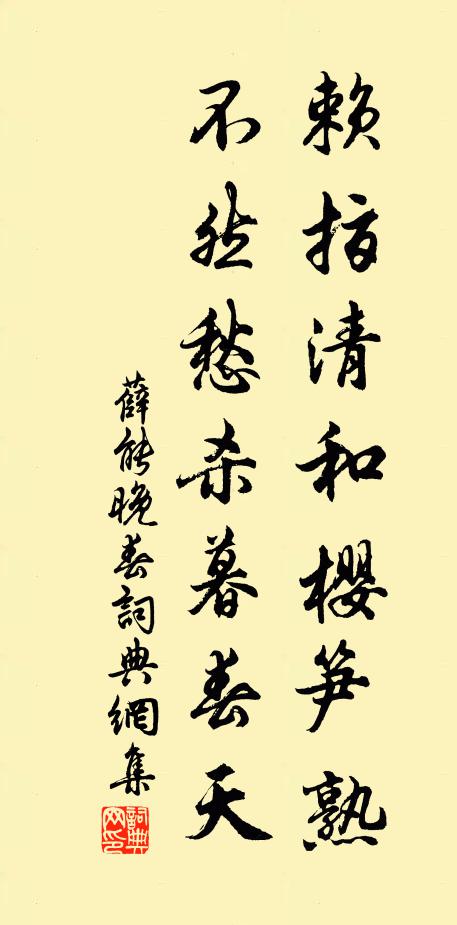 赖指清和樱笋熟
不然愁杀暮春天
薛能晚春詞典網集
詞典网印